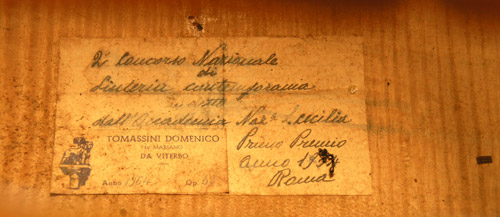 2º Concorso Nazionale
di
Liuteria contemporania
dall'Accademia Naz.le S. Cecilia
TOMASSINI DOMENICO
fu MARIANO
DA VITERBO
Anno Op.
Primo Premio
anno 1954
Roma